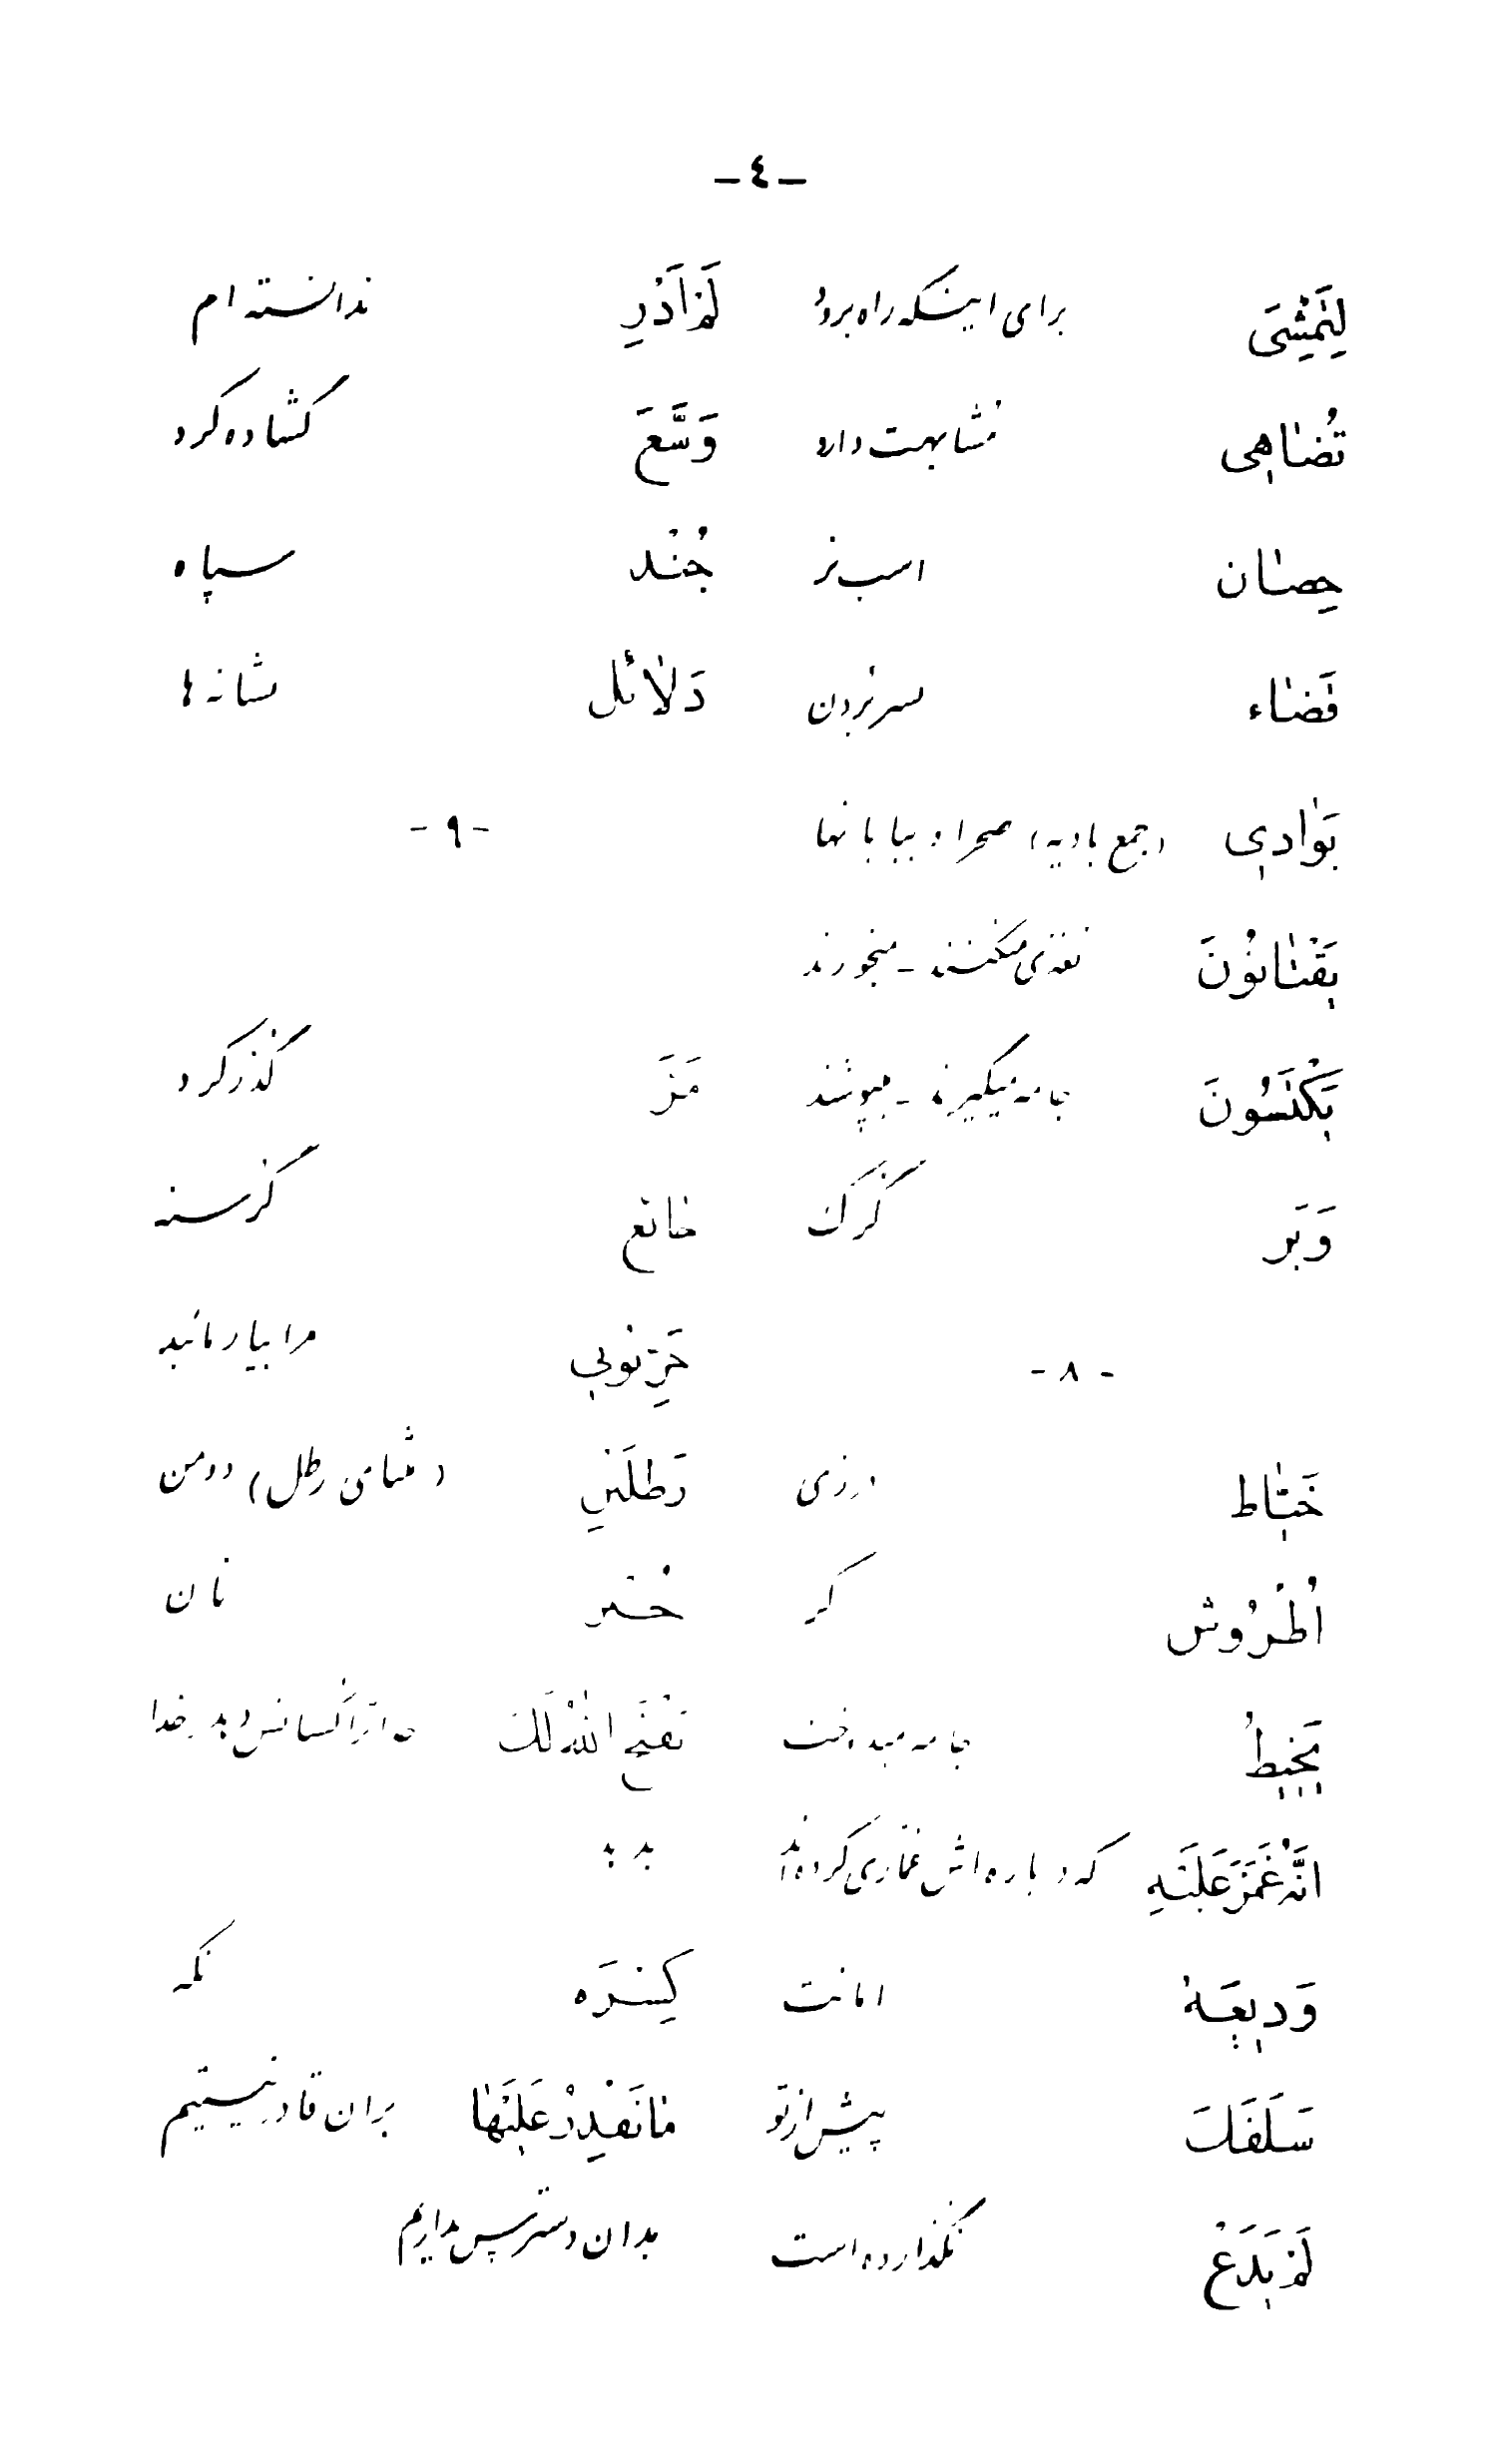 -٤-
لِیَمْشِیَ برای اینکه راه برود لَمْ اَدْرِ ندانسته ام
تُضاهی مشابهت دارد وَسَّعَ گشاده کرد
حِصان اسب نر جُنْد سپاه
قَضاء بسر بردن دَلائل نشانه ها
بَوادی (جمع بادیه) صحرا و بیابانها -٩-
یَقْتاتُونَ تغذی میکنند - میخورند
یَکْتَسُونَ جامه میگیرند - میپوشند مَرَّ گذر کرد
وَبَر کرک جائع گرسنه
-٨- جَرِّبُونی مرا بیازمائید
خَیّاط درزی رَطلَیْنِ (مثنای رطل) دو من
اُطْرُوش کر خُبْز نان
یَخیطُ جامه میدوخت یَفْتَحِ اللهُ لَكَ خدا
اَنَّهُ غَمَزَ عَلَیْهِ که درباره اش غمازی کرده‌اند بدهد
وَدیعَةُ امانت کِسْرَه تکه
سَلَفَكَ پیش از تو ما نَقْدِرُ عَلَیْها بر آن قادر نیستیم
لَمْ یَدَعْ نگذارده است بدان دسترس نداریم